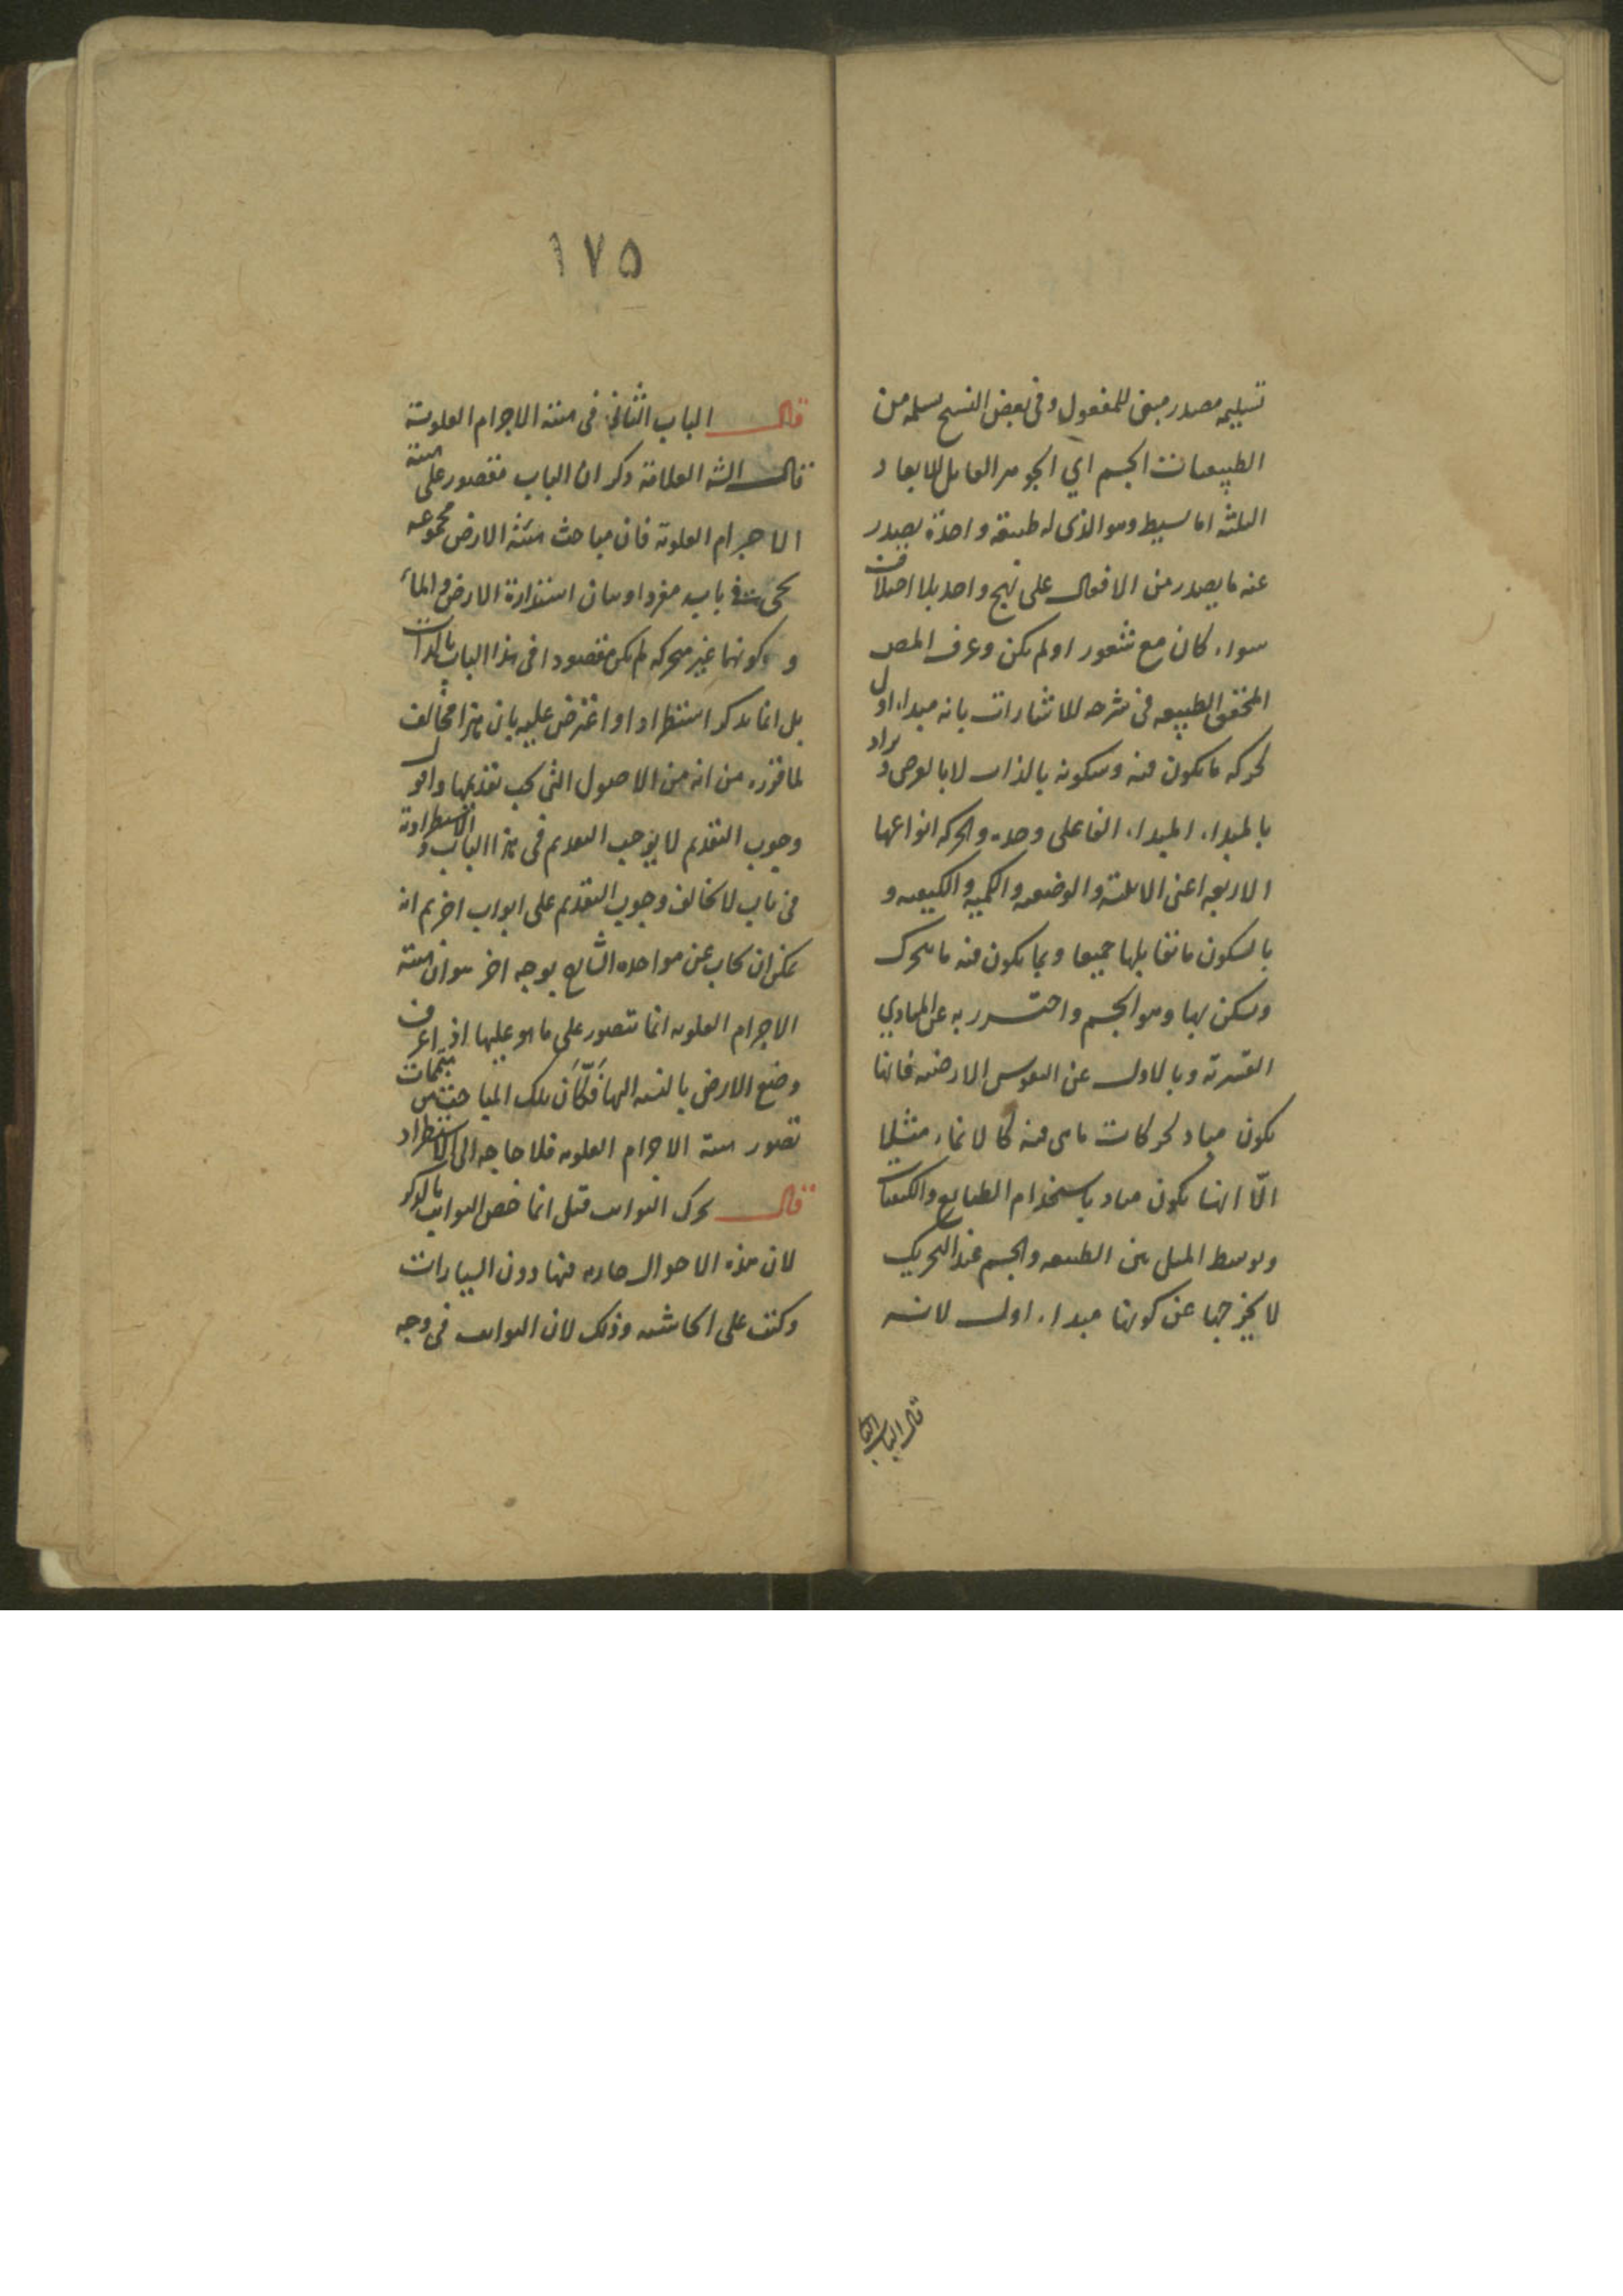 تسليمه مصدر مبنى للمفعول وفى بعض النسخ يسلمه من
الطبيعيات الجسم اي الجوهر القابل للابعاد
الثلثه اما بسيط وهو الذى له طبيعة واحدة يصدر
عنه ما يصدر من الافعال على نهج واحد بلا اختلاف
سواء كان مع شعور او لم يكن وعرف المص
المحقق الطبيعه فى شرحه للاشارات بانه مبداء اول
لحركه ما يكون فيه وسكونه بالذات لا بالعرض ويراد
بالمبداء المبداء الفاعلى وحده والحركه انواعها
الاربعه اعنى الاينيه والوضعيه والكميه والكيفيه و
بالسكون ما تقابلها جميعا وبما يكون فيه ما يتحرك
ويسكن بها وهو الجسم واحترز به عن المبادي
القسرية وبالاول عن النفوس الارضيه فانها
يكون مباد لحركات ما هى فيه كالانماء مثلا
الّا انها يكون مباد باستخدام الطبايع والكيفيات
وتوسط الميل بين الطبيعه والجسم عند التحريك
لا يخرجها عن كونها مبداء اول لانه
قال الباب الثا
١٧٥
قال الباب الثانى فى هيئة الاجرام العلوية
قال الشه العلامة ذكر ان الباب مقصور على هيئة
الاجرام العلوية فان مباحث هيئة الارض مجموعه
يجئ فى باب مفرد اوبيان استدارة الارض والماء
و كونها غير متحركه لم يكن مقصودا فى هذا الباب بالذات
بل انما يذكر استطرادا واعترض عليه بان هذا مخالف
لما قرره من انه من الاصول التى يجب تقديمها واقول
وجوب التقديم لا يوجب التقديم فى هذا الباب والاستطرادية
فى باب لا يخالف وجوب التقديم على ابواب اخر ثم انه
يمكن ان يجاب عن مواخذه الشارح بوجه اخر هو ان هيئة
الاجرام العلويه انما تتصور على ما هو عليها اذا عرف
وضع الارض بالنسبه اليها فكَأَن تلك المباحث من متممات
تصور هيئة الاجرام العلويه فلا حاجه الى الاستطراد
قال تحرك الثوابت قيل انما خص الثوابت بالذكر
لان هذه الاحوال جاريه فيها دون السيارات
وكتب على الحاشيه وذلك لان الثوابت فى وجه